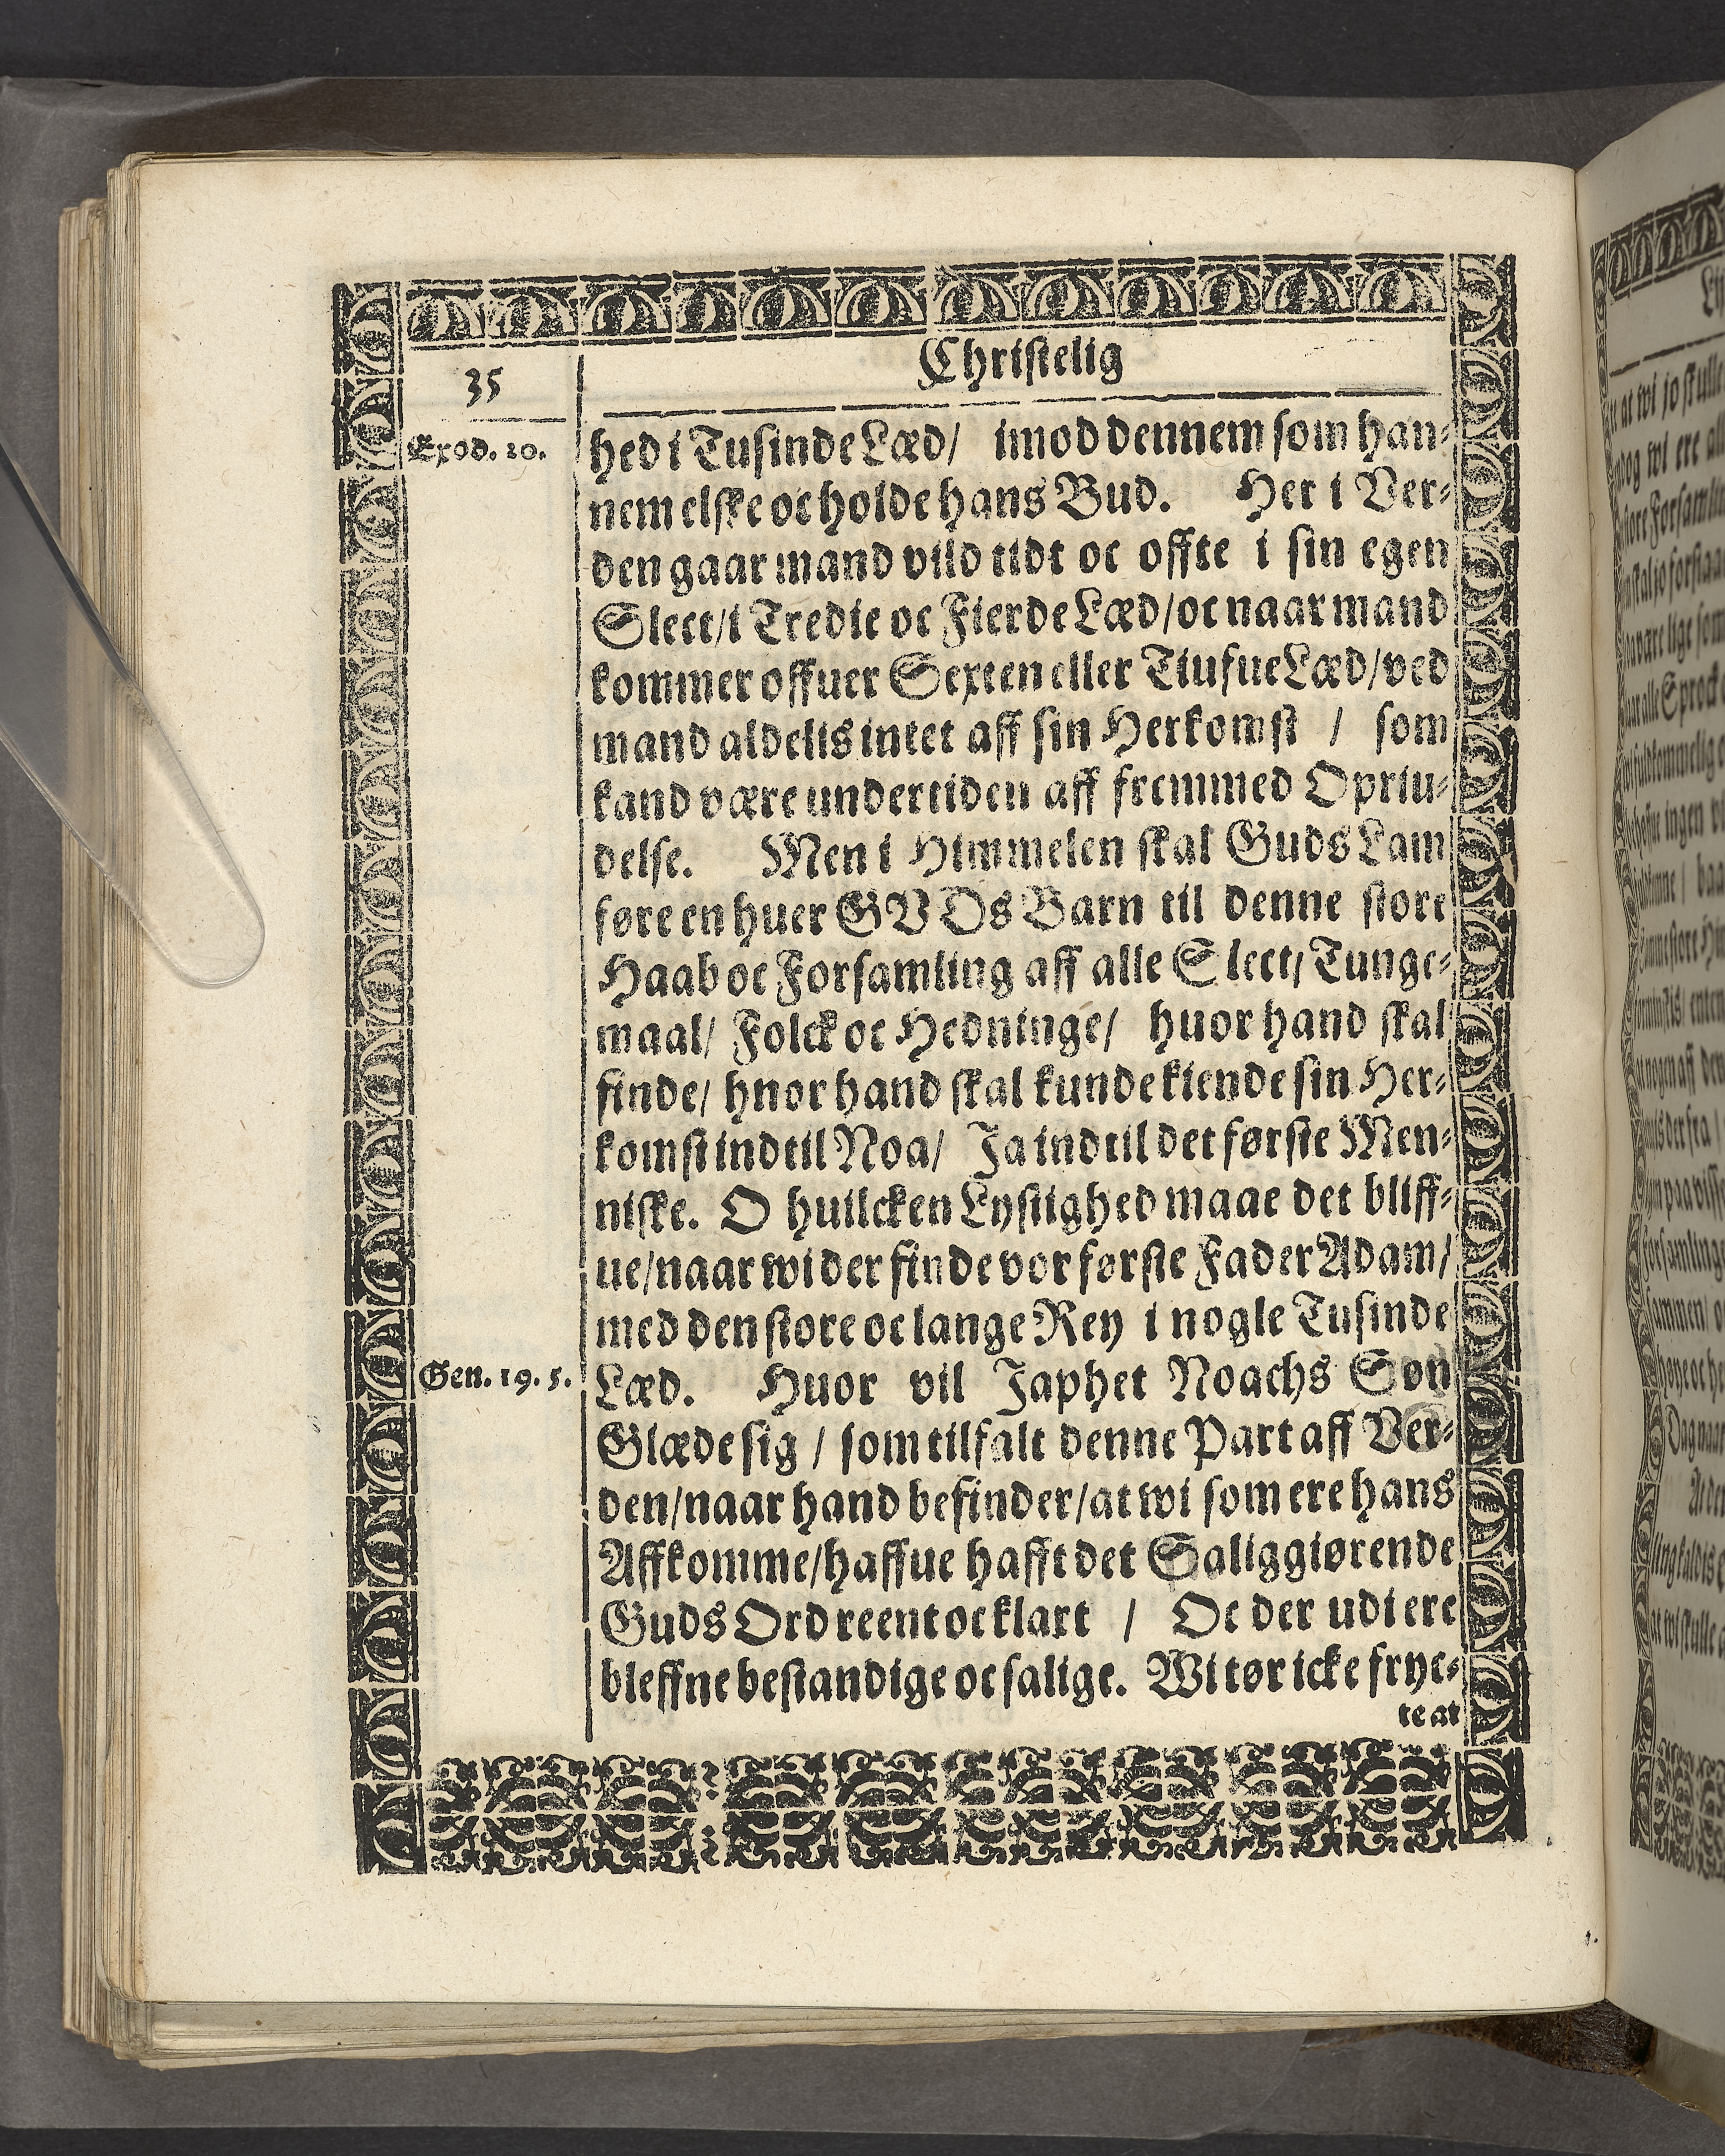 Christelig
35
Exod. 20.
hed i Tusinde Læd/ imod dennem som han-
nem elske oc holde hans Bud. Her i Ver-
den gaar mand vild tidt oc offte i sin egen
Slect/i Tredie oc Fierde Læd/oc naar mand
kommer offuer Sexten eller Tiufue Læd/ved
mand aldelis intet aff sin Herkomst / som
kand være undertiden aff fremmed Oprin-
delse. Men i Himmelen skal Guds Lam
føre en huer GVDs Barn til denne store
Haab oc Forsamling aff alle Slect/Tunge-
maal/ Folck oc Hedninge/ huor hand skal
finde/ hnor hand skal kunde kiende sin Her-
komst indtil Noa/ Ja indtil det første Men-
niske. O huilcken Lystighed maae det bliff-
ue/naar wi der finde vor første Fader Adam/
med den store oc lange Rey i nogle Tusinde
Gen. 19. 5.
Læd. Huor vil Japhet Noachs Søn
Glæde sig / som tilfalt denne Part aff Ver-
den/naar hand befinder/at wi som ere hans
Affkomme/haffue hafft det Saliggiørende
Guds Ord reent oc klart / Oc der udi ere
bleffne bestandige oc salige. Wi tør icke fryc-
te at